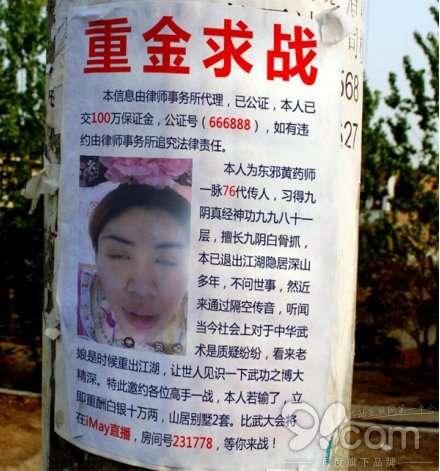 重金求战
本信息由律师事务所代理，已公证，本人已
交100万保证金，公证号（666888），如有违
约由律师事务所追究法律责任。
本人为东邪黄药师
一脉76代传人，习得九
阴真经神功九九八十一
层，擅长九阴白骨抓，
本已退出江湖隐居深山
多年，不问世事，然近
来通过隔空传音，听闻
当今社会上对于中华武
术是质疑纷纷，看来老
娘是时候重出江湖，让世人见识一下武功之博大
精深。特此邀约各位高手一战，本人若输了，立
即重酬白银十万两，山居别墅2套。比武大会将
在iMay直播，房间号231778，等你来战！
668
627
91.com
百度旗下品牌